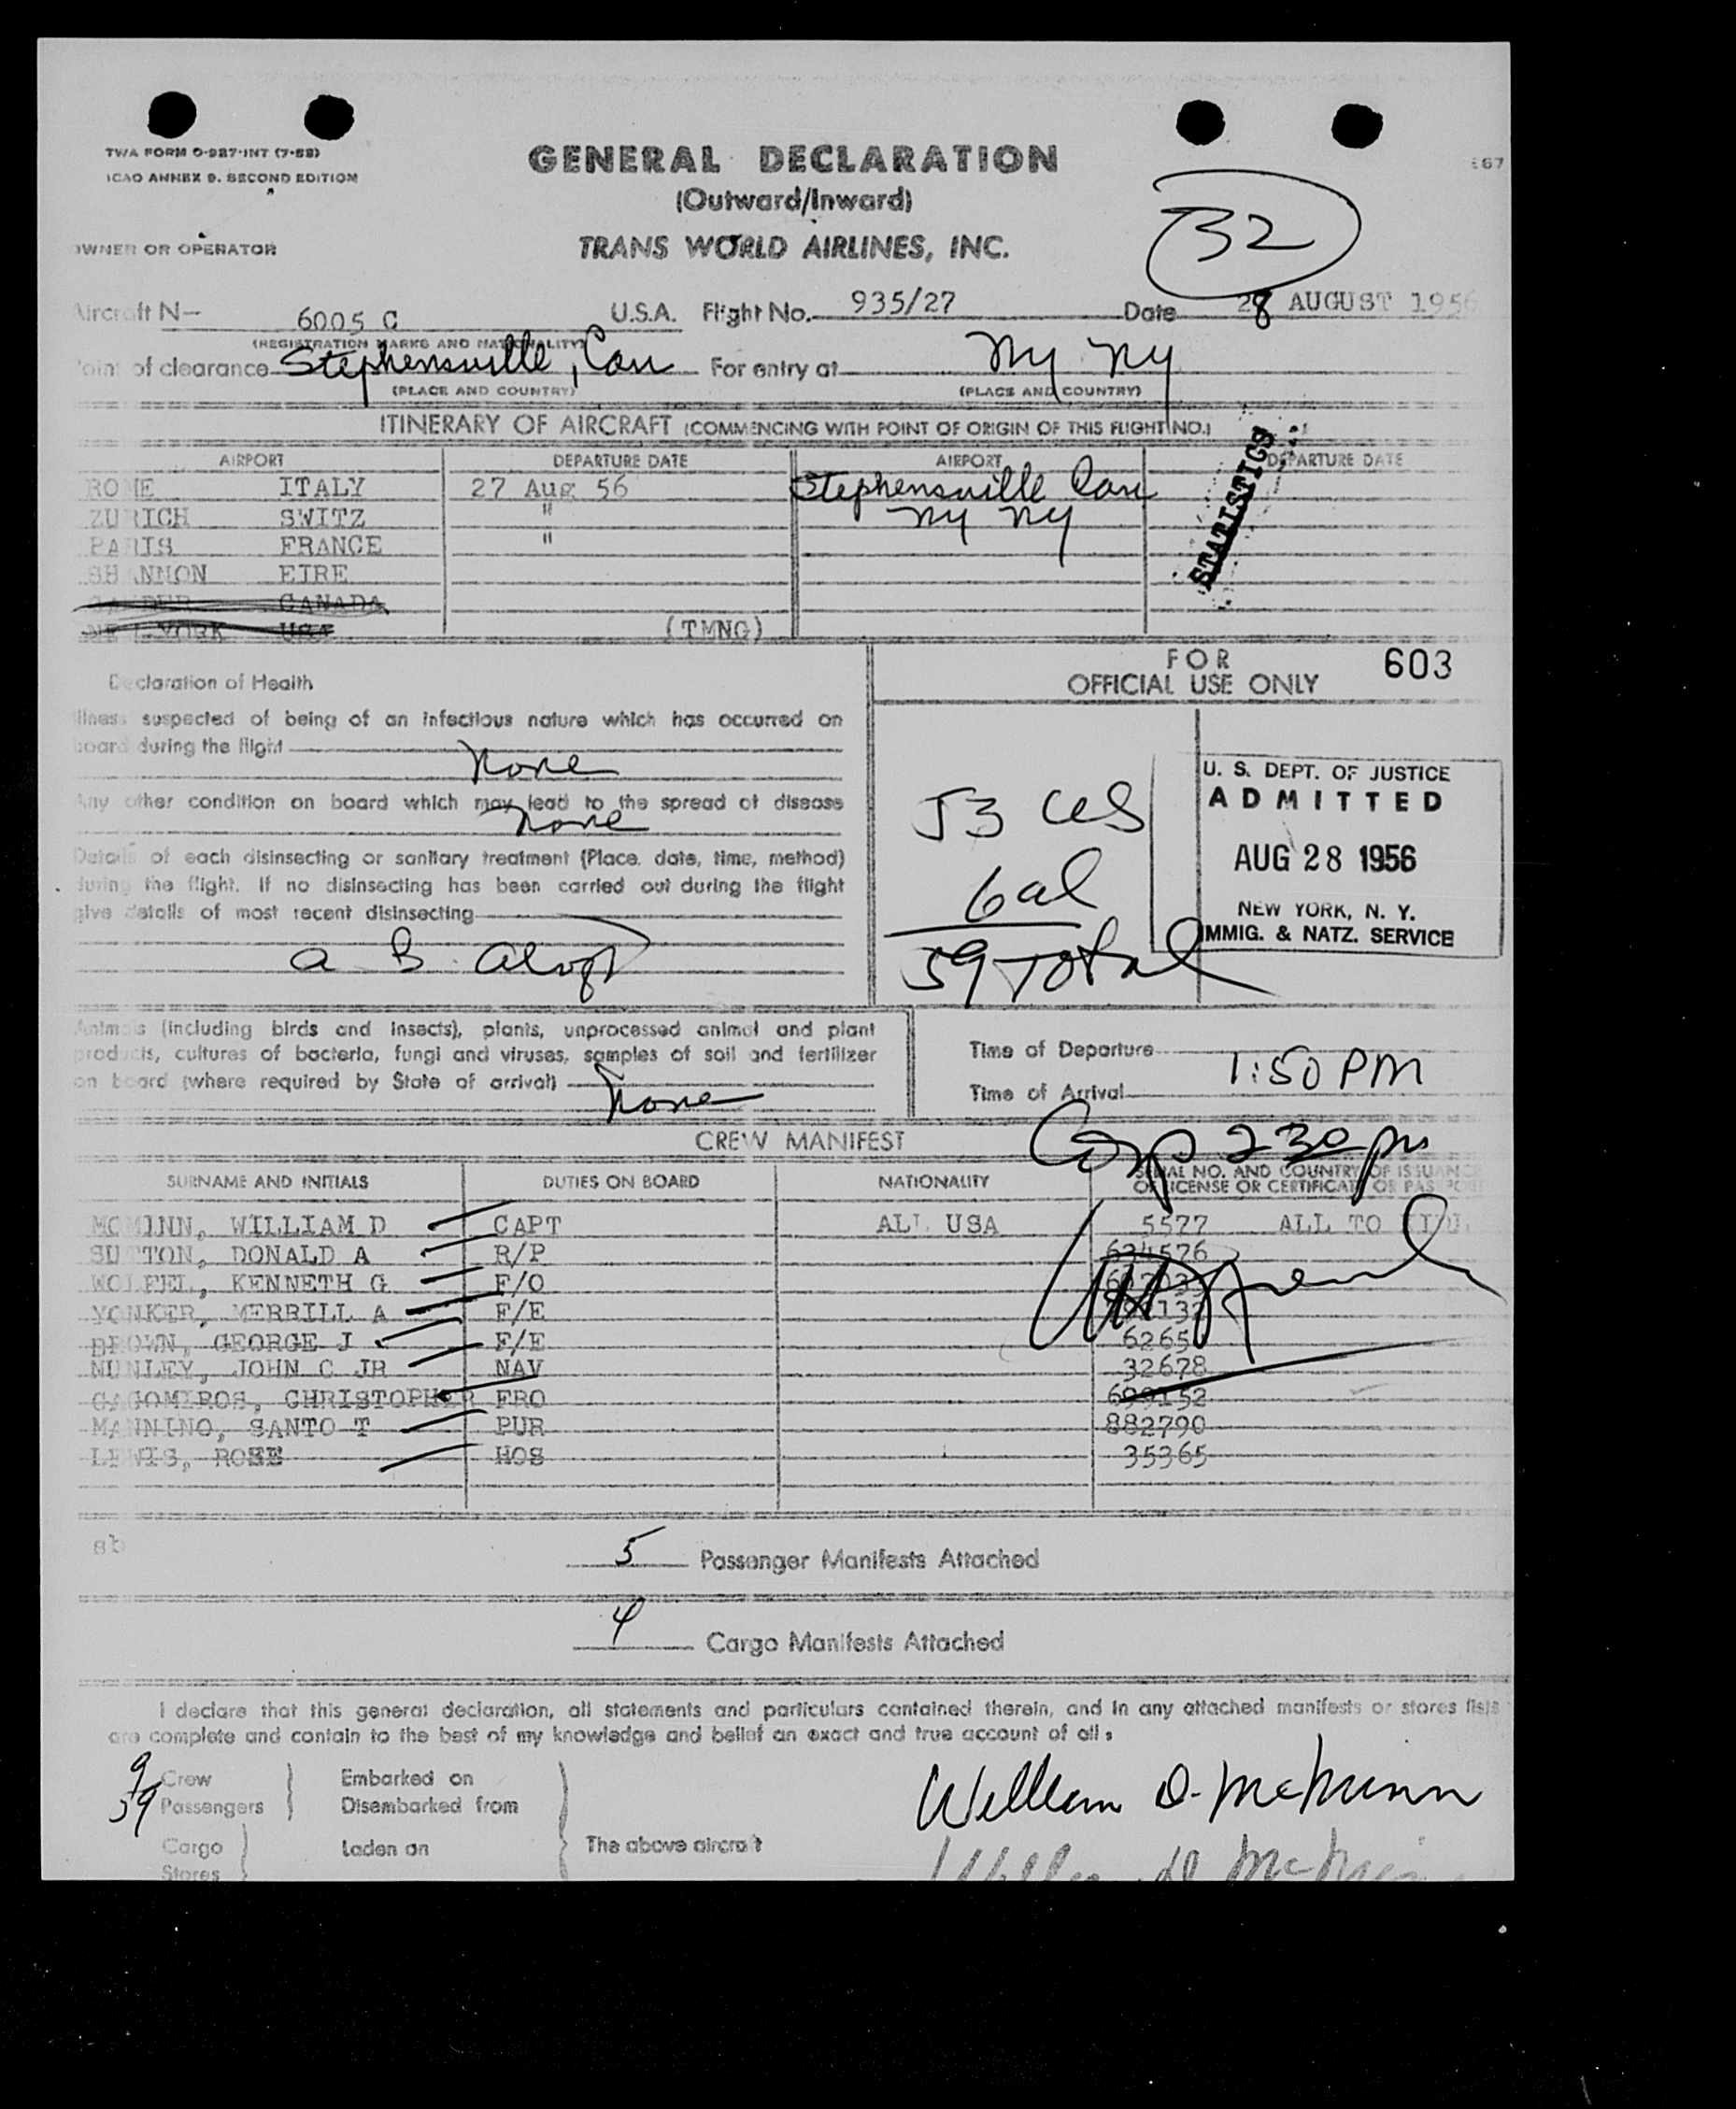 TWA FORM O-927-INT (7-55)
ICAO ANNEX 9. SECOND EDITION
GENERAL DECLARATION
(Outward/Inward)
32
OWNER OR OPERATOR
TRANS WORLD AIRLINES, INC.
Aircraft N- 6005 C U.S.A. Flight No. 935/27 Date 28 AUGUST 1956
(REGISTRATION MARKS AND NATIONALITY)
Point of clearance Stephensville, Can For entry at NY NY
(PLACE AND COUNTRY) (PLACE AND COUNTRY)
ITINERARY OF AIRCRAFT (COMMENCING WITH POINT OF ORIGIN OF THIS FLIGHT NO.)
AIRPORT DEPARTURE DATE AIRPORT DEPARTURE DATE
ROME ITALY 27 Aug 56 Stephensville Can
ZURICH SWITZ " NY NY
PARIS FRANCE "
SHANNON EIRE
GANDER CANADA
NEW YORK USA (TMNG)
STATISTICS
FOR 603
OFFICIAL USE ONLY
Declaration of Health
Illness suspected of being of an infectious nature which has occurred on
board during the flight
None
Any other condition on board which may lead to the spread of disease
None
Details of each disinsecting or sanitary treatment (Place, date, time, method)
during the flight. If no disinsecting has been carried out during the flight
give details of most recent disinsecting
53 CCS
6 al
59 Total
U. S. DEPT. OF JUSTICE
ADMITTED
AUG 28 1956
NEW YORK, N. Y.
IMMIG. & NATZ. SERVICE
Animals (including birds and insects), plants, unprocessed animal and plant
products, cultures of bacteria, fungi and viruses, samples of soil and fertilizer
on board (where required by State of arrival)
None
Time of Departure
Time of Arrival 1:50 PM
CREW MANIFEST
230 pm
SURNAME AND INITIALS DUTIES ON BOARD NATIONALITY SERIAL NO. AND COUNTRY OF ISSUANCE
OF LICENSE OR CERTIFICATE OR PASSPORT
MCMINN, WILLIAM D CAPT ALL USA 5577 ALL TO
SUTTON, DONALD A R/P 634576
WOLFEL, KENNETH G F/O
YONKER, MERRILL A F/E
BROWN, GEORGE J F/E 6265
NUNLEY, JOHN C JR NAV 32678
GAGOMIROS, CHRISTOPHER FRO 699152
MANNINO, SANTO T PUR 882790
LEWIS, ROSE HOS 35365
sb
5 Passenger Manifests Attached
4 Cargo Manifests Attached
I declare that this general declaration, all statements and particulars contained therein, and in any attached manifests or stores lists
are complete and contain to the best of my knowledge and belief an exact and true account of all:
9 Crew Embarked on
59 Passengers Disembarked from
Cargo Laden on The above aircraft
Stores
William D. McMinn